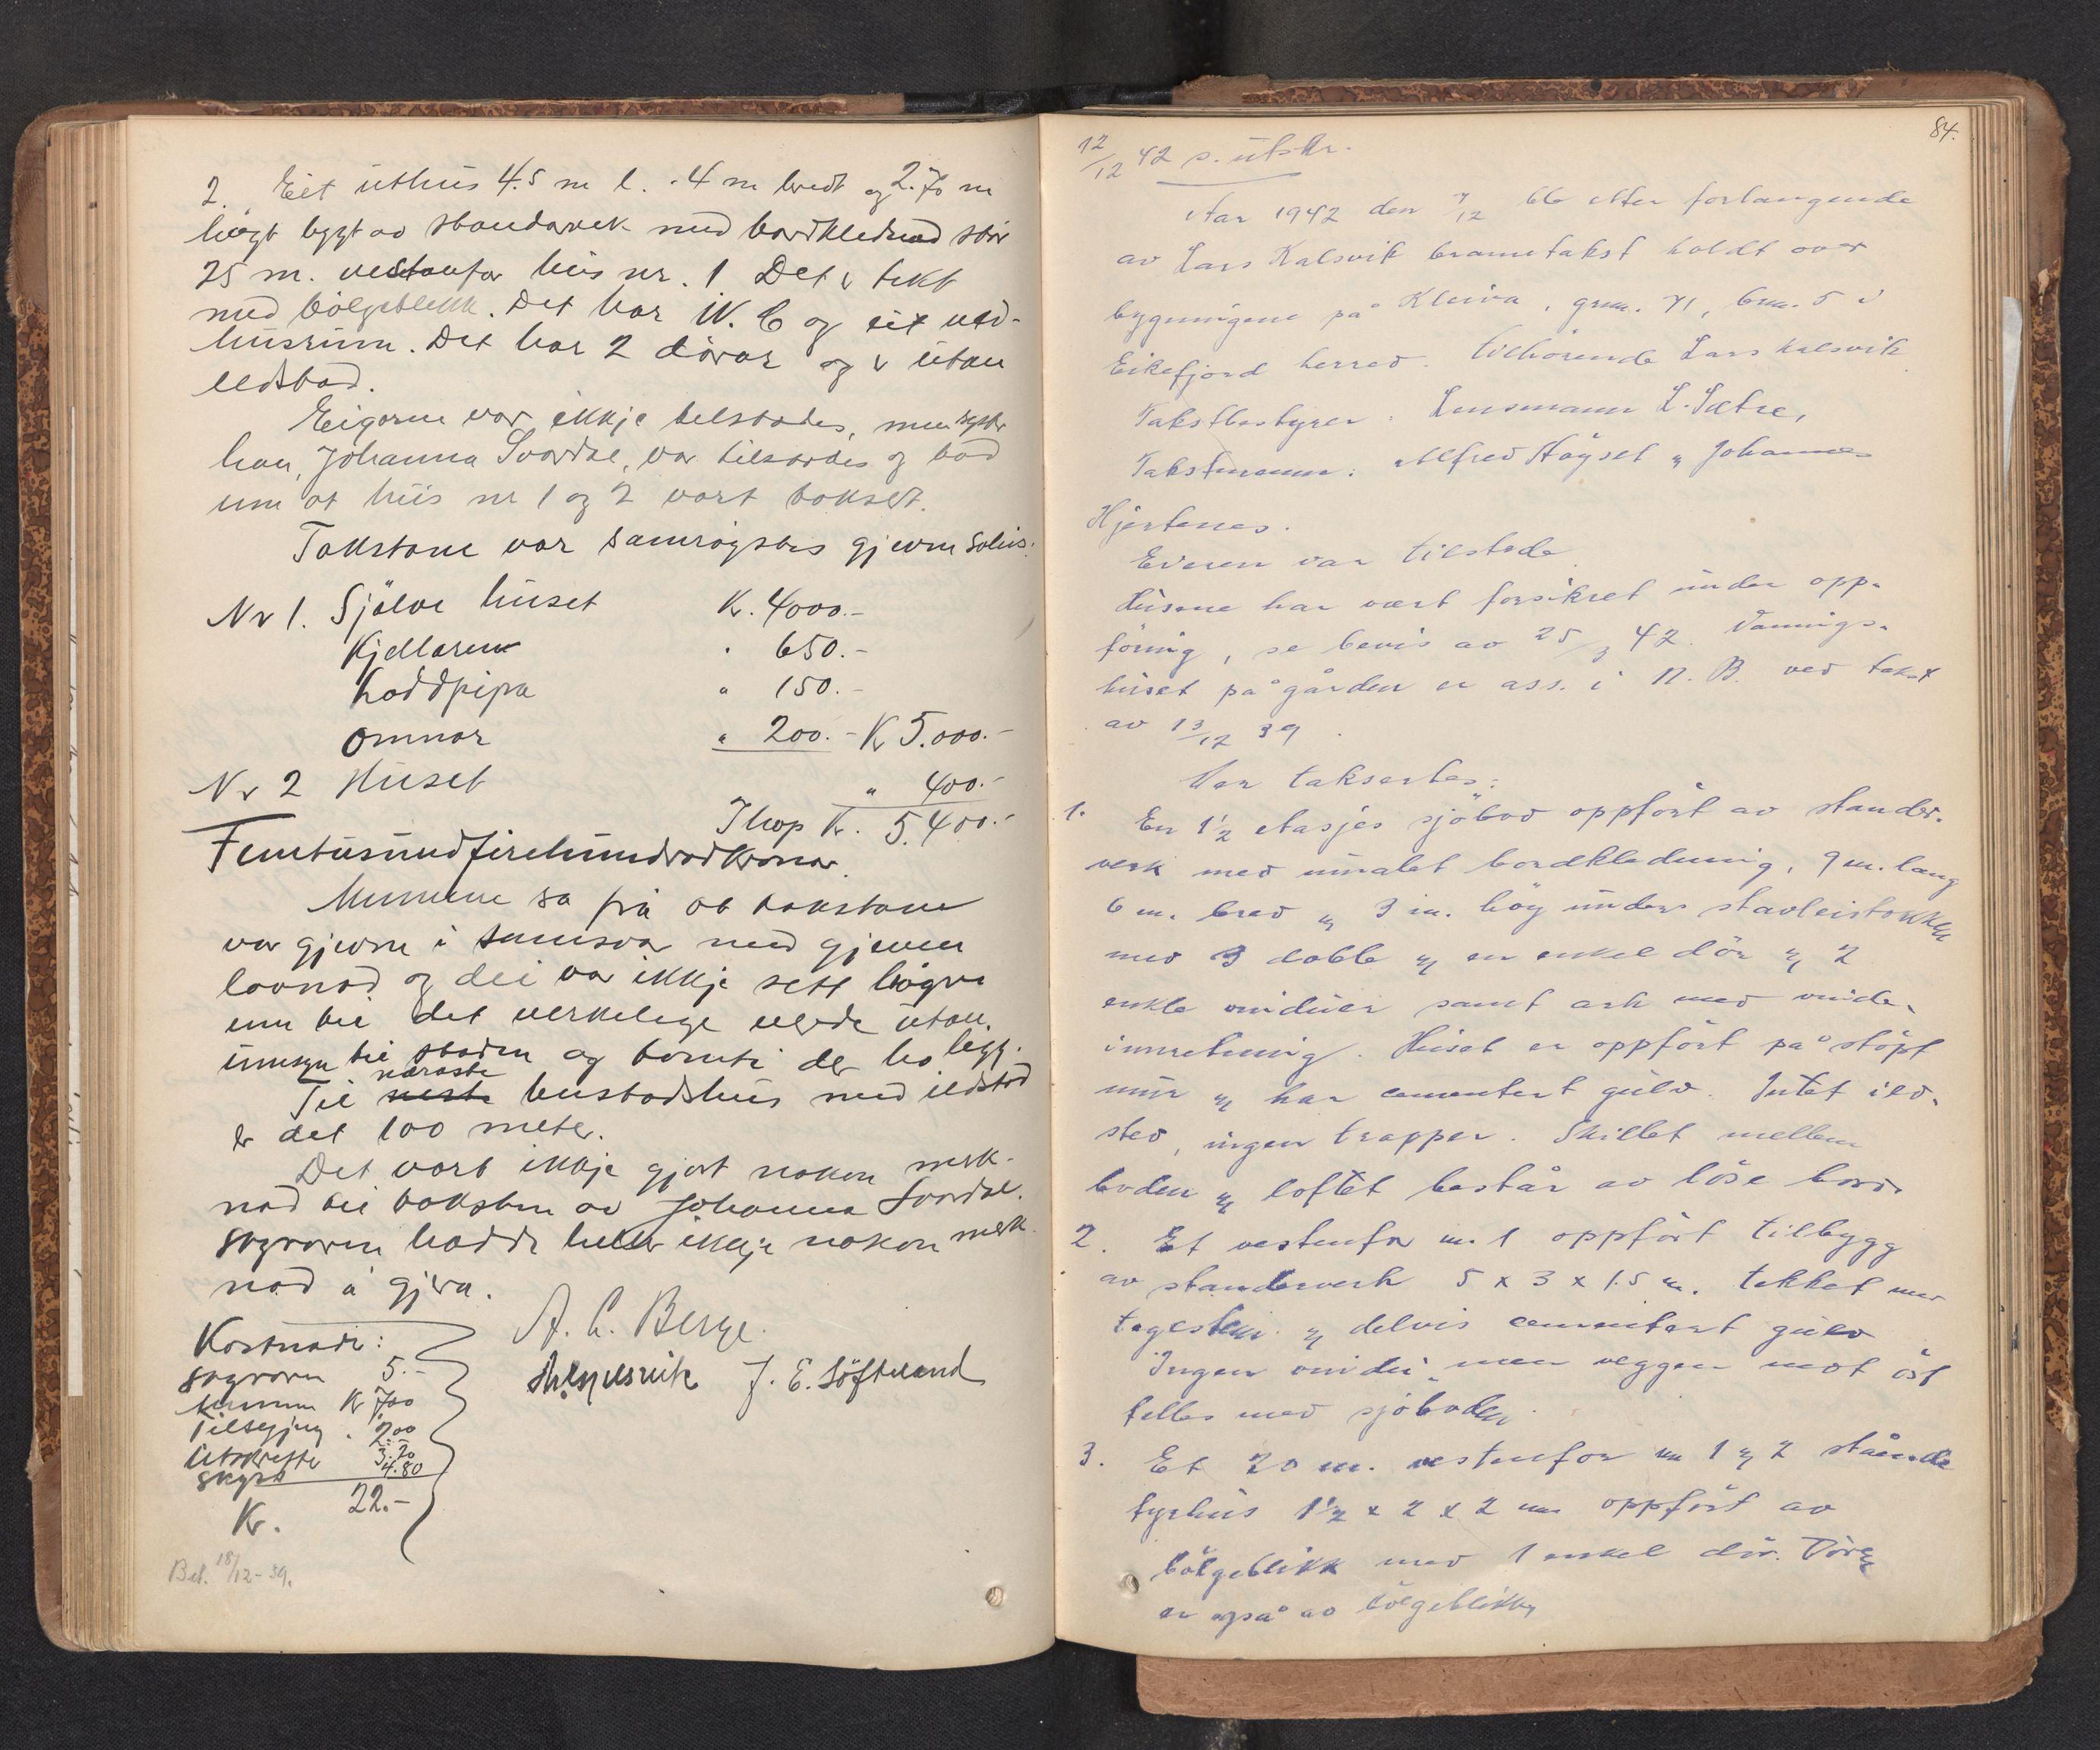 2. Eit uthus 4.5 m l. 4 m bredt og 2.70 m
högt bygt av standarvek med bordklednad stör
25 m. vestanfor hus nr. 1 Det er tekt
med bölgeblekk. Det har W.C og eit ved-
husrum. Det har 2 dörar og er utan
eldstad.
Eigaren var ikkje tilstades, men syster
hau, Johanna Svardal, var tilstades og bad
um at hus nr 1 og 2 vart taksert.
Takstane var samrögstes gjevne soleis:
Nr 1. Sjölve huset Kr. 4000.-
Kjellaren " 650.-
Loddpipa " 150.-
Omnar " 200.- Kr 5.000.-
Nr 2 Huset " 400.-
Ihop Kr. 5.400.-
Femtusundfirehundradkronar.
Mennene sa frå at takstane
var gjevne i samsvar med gjeven
lovnad og dei var ikkje sett högre
enn til det verkelege verde utan
umsyn til staden og tomti der ho ligg.
Til næraste bustadshus med ildstad
er det 100 meter.
Det vart ikkje gjort nokon merk-
nad til taksten av Johanna Svardal.
Sogvaren hadde heller ikkje nokon merk-
nad å gjera.
Kostnadr:
Sogvaren 5.-
Mennene Kr 7.00
Tilsegjing " 2.00
Utskrifter 3.20
Skyss 4.80
Kr. 22.-
A. L. Berge.
J. E. Söfteland
Bet. 18/12-39.
84.
12/12 42 s. utskr.
Aar 1942 den 7/12 ble etter forlangende
av Lars Kalsvik branntakst holdt over
bygningene på Kleiva, grnr. 71, brnr. 5 i
Eikefjord herred. Tilhörende Lars Kalsvik.
Takstbestyrer: Lensmann L. Sætre,
Takstmenn: Alfred Höyset og Johannes
Hjertenes.
Eieren var tilstede.
Husene har vært forsikret under opp-
föring, se bevis av 25/3 42. Vånings-
huset på gården er ass. i N. B. ved takst
av 13/12 39.
Var taksertes:
1. En 1½ etasjes sjöbod oppfört av stender-
verk med umalet bordkledning, 9 m. lang
6 m. bred og 3 m. höy under stavleistokken
med 3 doble og en enkel dör og 2
enkle vinduer samt ark med vinde-
innretning. Huset er oppfört på stöpt
mur og har cementert gulv. Intet ild-
sted, ingen trapper. Skillet mellem
boden og loftet består av löse bord.
2. Et vestenfor nr. 1 oppfört tilbygg
av standerverk 5 x 3 x 1.5 m. tekket med
tegelstein og delvis cementert gulv
Ingen vindu, men veggen mot öst
felles med sjöboden.
3. Et 20 m. vestenfor nr 1 og 2 stående
fyrhus 1½ x 2 x 2 m oppfört av
bölgeblikk med 1 enkel dör. Dören
er også av bölgeblikk